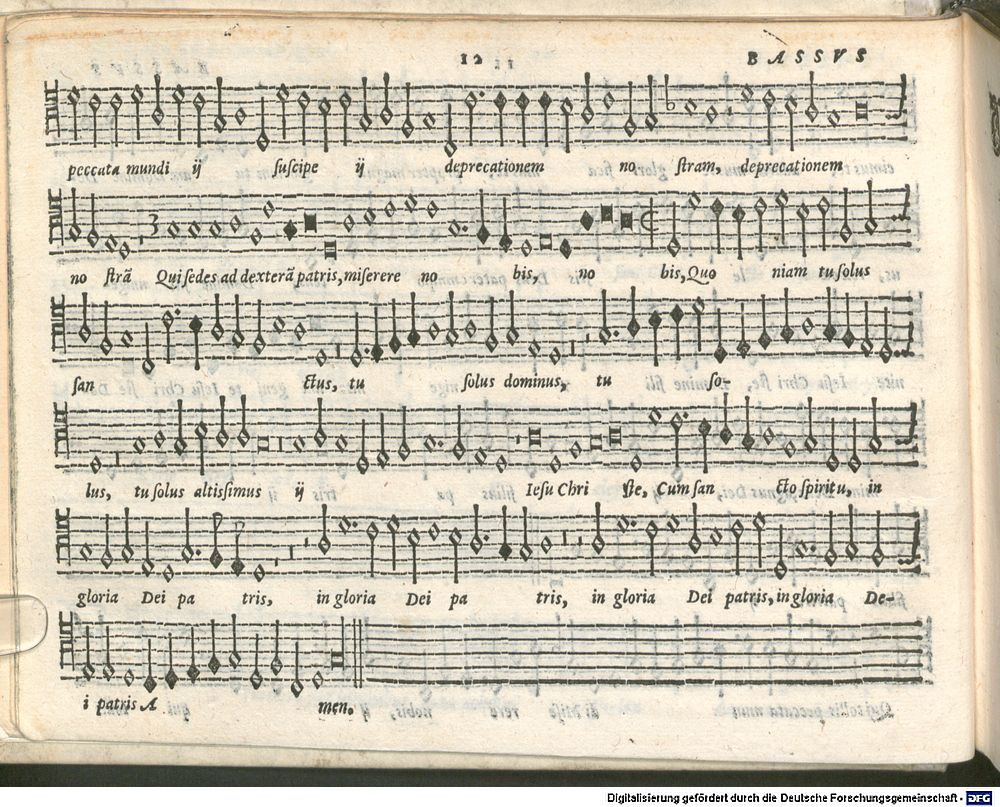 12 BASSVS
peccata mundi ij suscipe ij deprecationem no stram, deprecationem
no strã Qui sedes ad dexterã patris, miserere no bis, no bis, Quo niam tu solus
san ctus, tu solus dominus, tu so-
lus, tu solus altissimus ij Iesu Chri ste, Cum san cto spiritu, in
gloria Dei pa tris, in gloria Dei pa tris, in gloria Dei patris, in gloria De-
i patris A men.
Digitalisierung gefördert durch die Deutsche Forschungsgemeinschaft - DFG